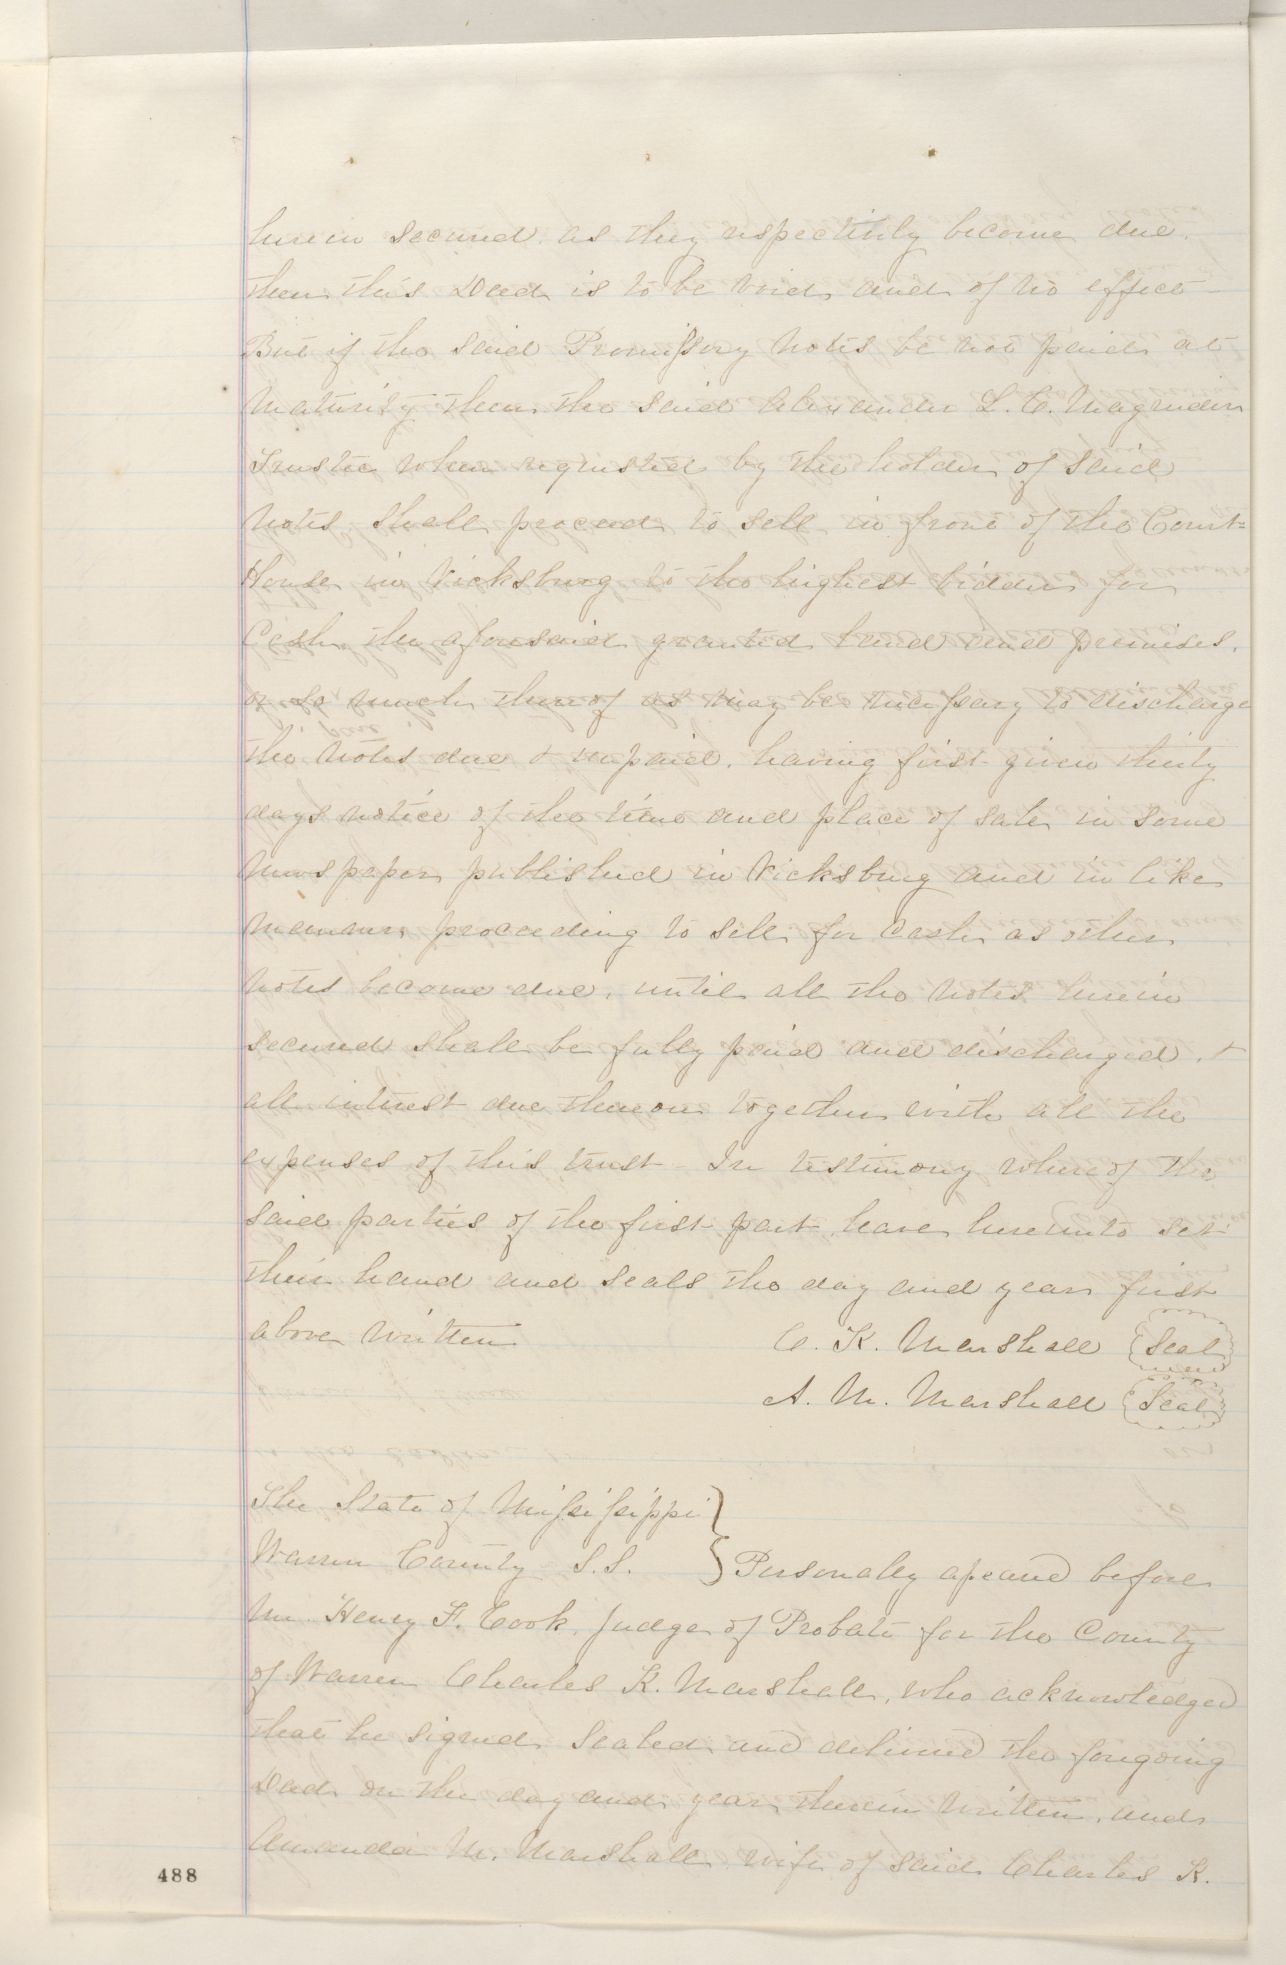 herein secured as they respectively become due.
then this Deed is to be void and of no effect—
But if the said Promissory notes be not paid at
maturity then the said Alexander L. C. Magruder
Trustee when requested by the holder of said
notes shall proceed to sell in front of the Court=
House in Vicksburg to the highest bidder for
Cash the aforesaid granted land and premises,
or so much thereof as may be necessary to discharge
the notes due & unpaid, having first given thirty
days notice of the time and place of sale in some
Newspaper published in Vicksburg and in like
manner proceeding to sell for Cash as other
notes become due, until all the notes herein
secured shall be fully paid and discharged, &
all interest due thereon together with all the
expenses of this trust— In testimony whereof the
said parties of the first part have hereunto set
their hand and seals the day and year first
above written
C. K. Marshall Seal
A. M. Marshall Seal
The State of Mississippi }
Warren County S.S. } Personally apeared before
me Henry F. Cook, Judge of Probate for the County
of Warren Charles K. Marshall, who acknowledged
that he signed sealed and delivered the foregoing
Deed on the day and year therein written, and
Amanda M. Marshall wife of said Charles K.
488